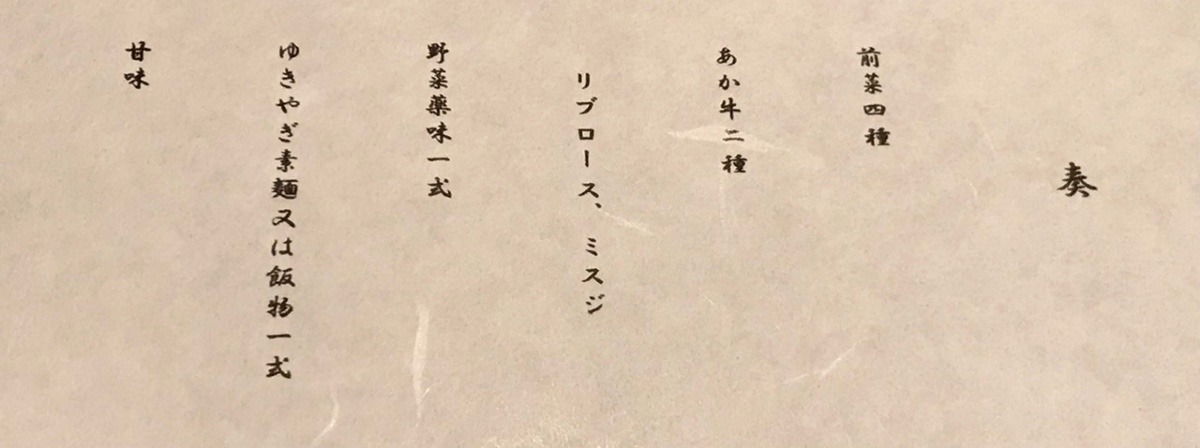 奏
前菜四種
あか牛二種
リブロース、ミスジ
野菜薬味一式
ゆきやぎ素麺又は飯物一式
甘味